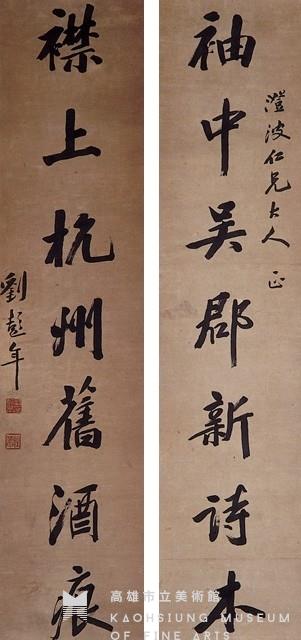 澄波仁兄大人 正
袖中吳郡新詩本
襟上杭州舊酒痕
劉彭年
高雄市立美術館
KAOHSIUNG MUSEUM
OF FINE ARTS